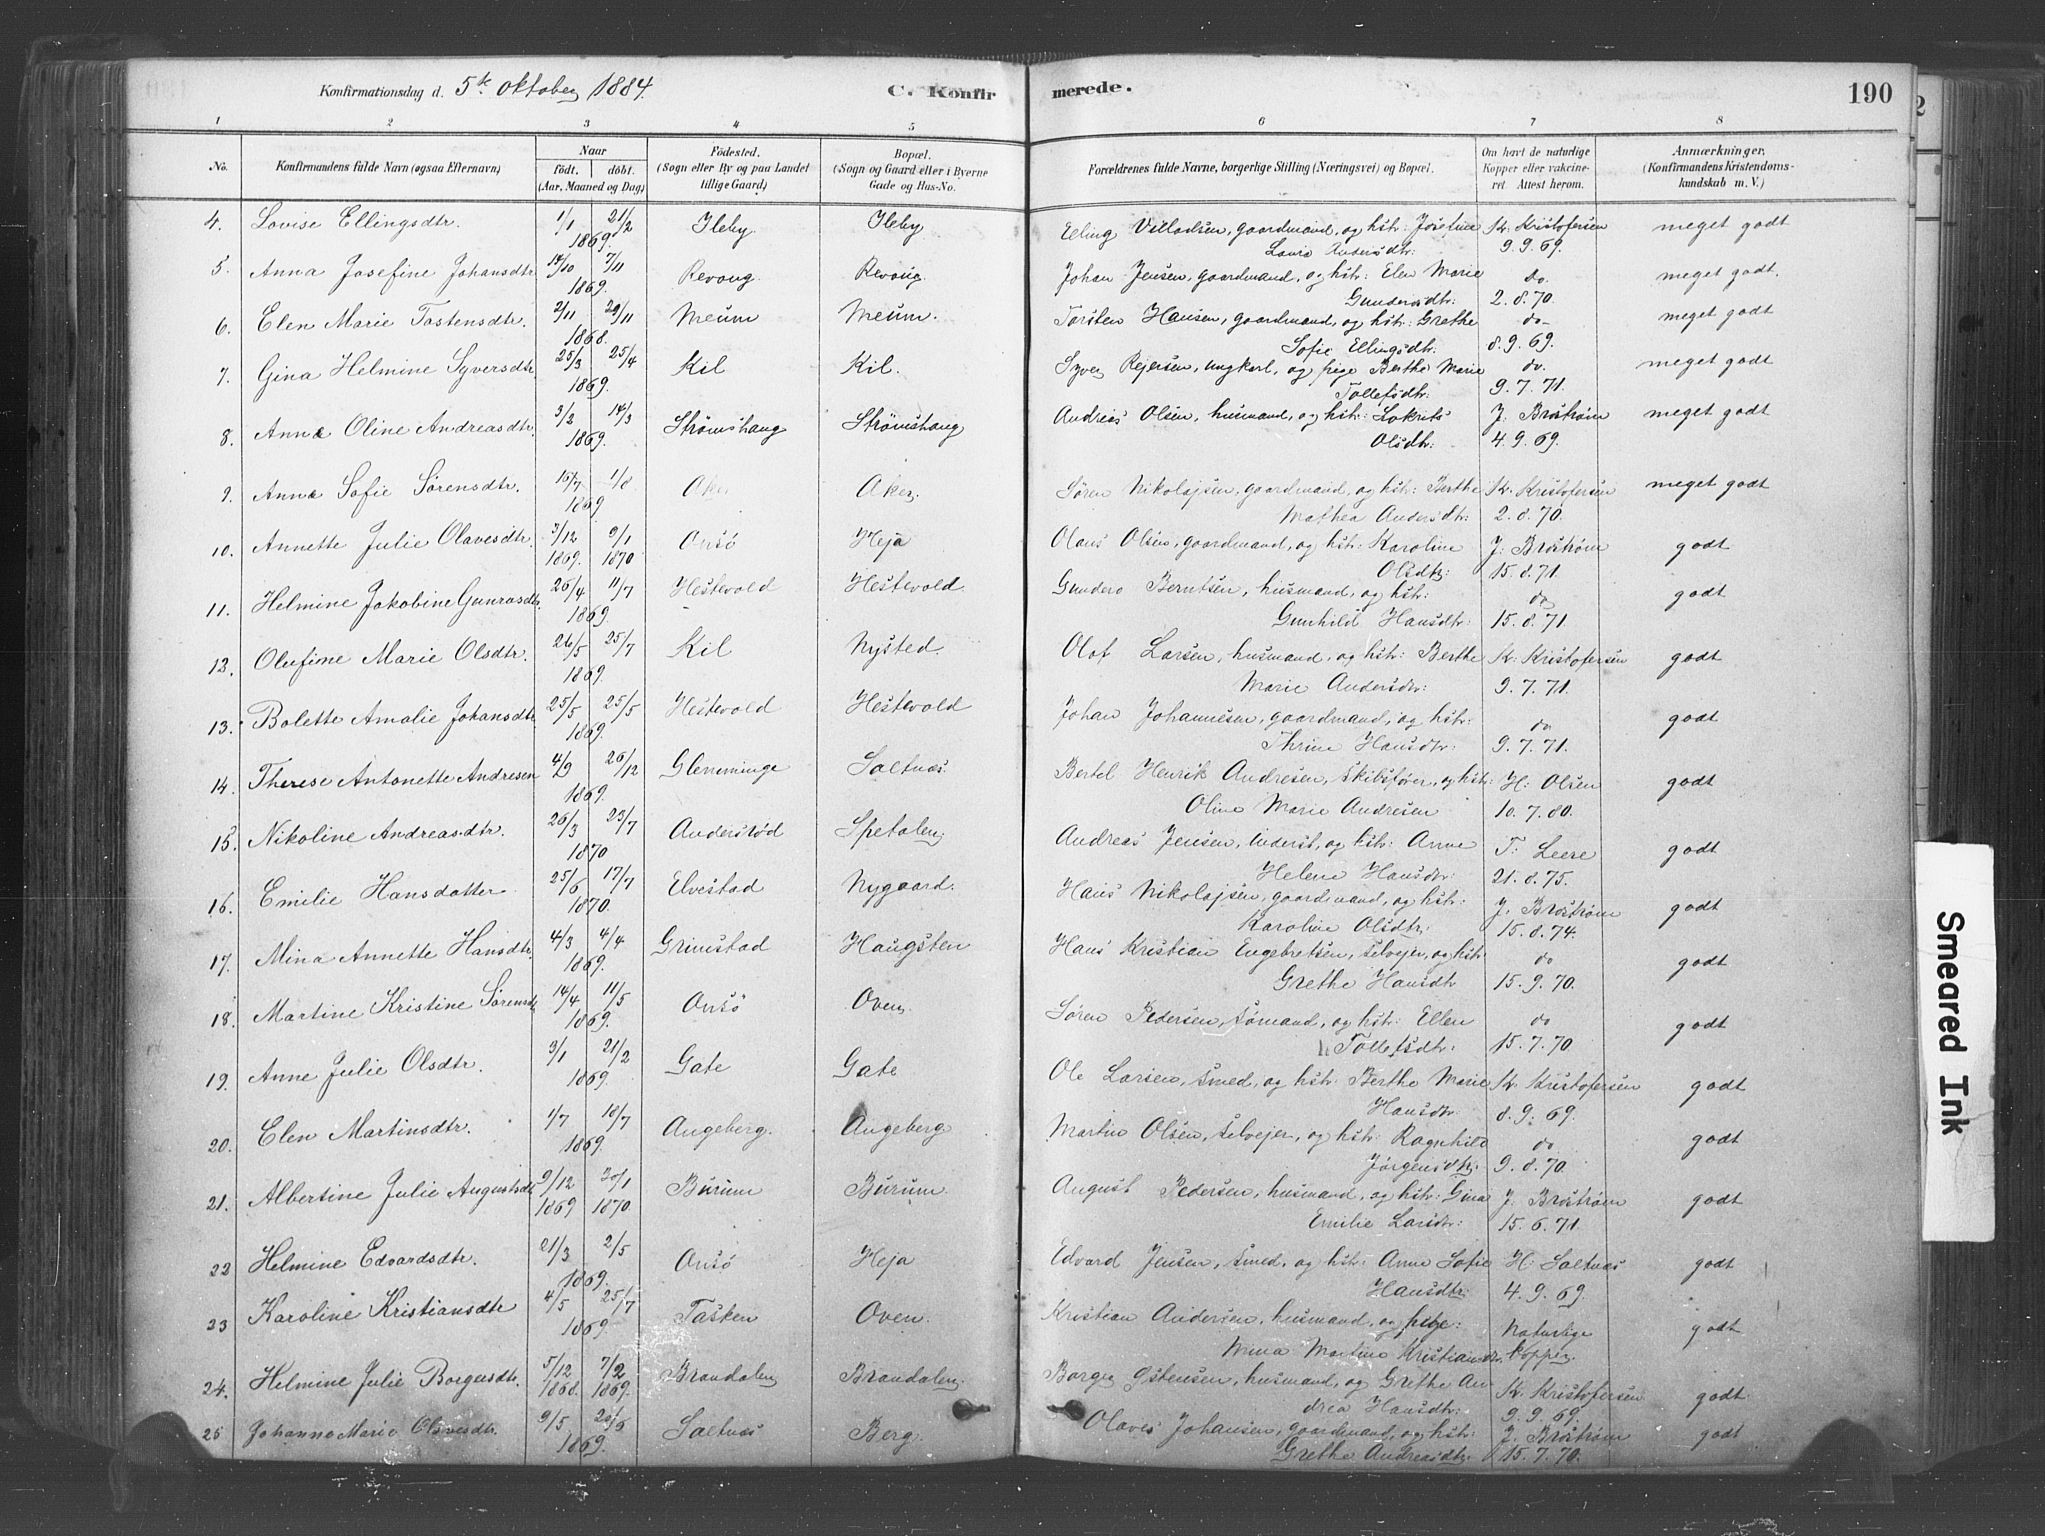 Konfirmationsdag d. 5te Oktober 1884. C. Konfir merede. 190
1 2 3 4 5 6 7 8
No. Konfirmandens fulde Navn (ogsaa Efternavn) Naar født. døbt. (Aar, Maaned og Dag) Fødested. (Sogn eller By og paa Landet tillige Gaard) Bopæl. (Sogn og Gaard eller i Byerne Gade og Hus-No. Forældrenes fulde Navne, borgerlige Stilling (Næringsvei) og Bopæl. Om havt de naturlige Kopper eller vakcineret. Attest herom. Anmærkninger. (Konfirmandens Kristendomskundskab m. V.)
4. Lovise Ellingsdtr. 1/1 21/2 Ileby Ileby. Elling Villadsen, gaardmand, og hstr: Josefine Kr. Kristofersen meget godt
1869. Lovis Andersdtr: 9.9.69.
5. Anna Josefine Johansdtr 14/10 7/11 Revoug Revoug Johan Jensen, gaardmand, og hstr: Elen Marie do. meget godt.
1869. Gundersdtr: 2.8.70.
6. Elen Marie Tostensdtr. 2/11 29/11 Meum Meum. Torsten Hansen, gaardmand, og hstr: Grethe do meget godt
1868. Sofie Ellingsdtr: 8.9.69.
7. Gina Helmine Syversdtr. 25/3 25/4 Kil Kil. Syver Rejersen, ungkarl, og pige Berthe Marie do. meget godt
1869. Tollefsdtr: 9.7.71.
8. Anne Oline Andreasdtr. 3/2 14/3 Strømshaug Strømshaug Andreas Olsen, husmand, og hstr: Lokrits J. Brøstrøm meget godt
1869. Olsdtr: 4.9.69.
9. Anne Sofie Sørensdtr. 15/7 1/8 Aker Aker. Søren Nikolajsen, gaardmand, og hstr: Berthe Kr. Kristofersen meget godt
1869 Mathea Andersdtr: 2.8.70.
10. Annette Julie Olavesdtr. 3/12 9/1 Onsö Heja Olaus Olsen, gaardmand, og hstr: Karoline J. Brøstrøm godt
1869. 1870 Olsdtr: 15.8.71.
11. Helmine Jakobine Gunrasdtr. 26/4 11/7 Hestevold Hestevold Gundero Berntsen, husmand, og hstr: do godt
1869. Gunhild Hansdtr: 15.8.71.
12. Olufine Marie Olsdtr. 26/5 25/7 Kil Nysted Olaf Larsen, husmand, og hstr: Berthe Kr. Kristofersen godt
1869. Marie Andersdtr: 9.7.71.
13. Bolette Amalie Johansdtr 25/5 25/5 Hestevold Hestevold Johan Johannesen, gaardmand, og hstr: do godt
1869. Thrine Hansdtr: 9.7.71.
14. Therese Antonette Andresen 4/9 26/12 Glemminge Saltnæs. Bertel Henrik Andresen, Skibsfører, og hstr: H. Olsen godt
1869. Oline Marie Andresen 10.7.80.
15. Nikoline Andreasdtr. 26/3 23/7 Anderstød Spetalen. Andreas Jensen, inderst, og hstr: Anne T: Leere godt
1870 Helene Hansdtr: 21.8.75.
16. Emilie Hansdatter 25/6 17/7 Elvestad Nygaard. Hans Nikolajsen, gaardmand, og hstr: J. Brøstrøm godt
1870. Karoline Olsdtr: 15.8.74.
17. Mina Annette Hansdtr. 4/3 4/4 Grimstad Haugsten Hans Kristian Engebretsen, selvejer, og hstr: do godt
1869. Grethe Hansdtr 15.9.70.
18. Martine Kristine Sørensdtr 14/4 11/5 Onsö Oven. Søren Pedersen, sømand, og hstr: Ellen do godt
1869. Tollefsdtr: 15.7.70
19. Anne Julie Olsdtr. 3/1 21/2 Gate Gate Ole Larsen, smed, og hstr: Berthe Marie Kr. Kristofersen godt
1869. Hansdtr: 8.9.69.
20. Elen Martinsdtr. 1/7 18/7 Augeberg. Augeberg Martin Olsen, selvejer, og hstr: Ragnhild do godt
1869. Jørgensdtr: 9.8.70.
21. Albertine Julie Augustsdtr 9/12 30/1 Burum Burum. August Pedersen, husmand, og hstr: Gina J. Brøstrøm godt
1869 1870. Emilie Larsdtr: 15.6.71.
22 Helmine Edvardsdtr. 21/3 2/5 Onsö Heja Edvard Jensen, smed, og hstr: Anne Sofie H. Saltnæs godt
1869. Hansdtr: 4.9.69.
23 Karoline Kristiansdtr 4/5 25/7 Tasken Oven. Kristian Andersen, husmand, og pige: Naturlige godt
1869 Mina Martine Kristiansdtr. kopper.
24. Helmine Julie Borgersdtr. 5/12 7/2 Brandalen Brandalen. Borger Østensen, husmand, og Grethe An Kr. Kristofersen godt
1868. 1869. drea Hansdtr: 9.9.69.
25 Johanne Marie Olavesdtr. 9/5 Saltnæs Berg. Olaves Johansen, gaardmand, og hstr: J. Brøstrøm godt
1869. Grethe Andreasdtr. 15.7.70.
Smeared Ink
2